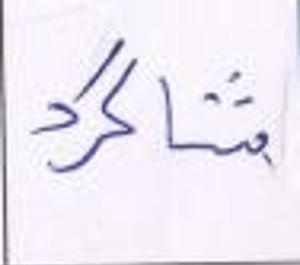 بشاگرد